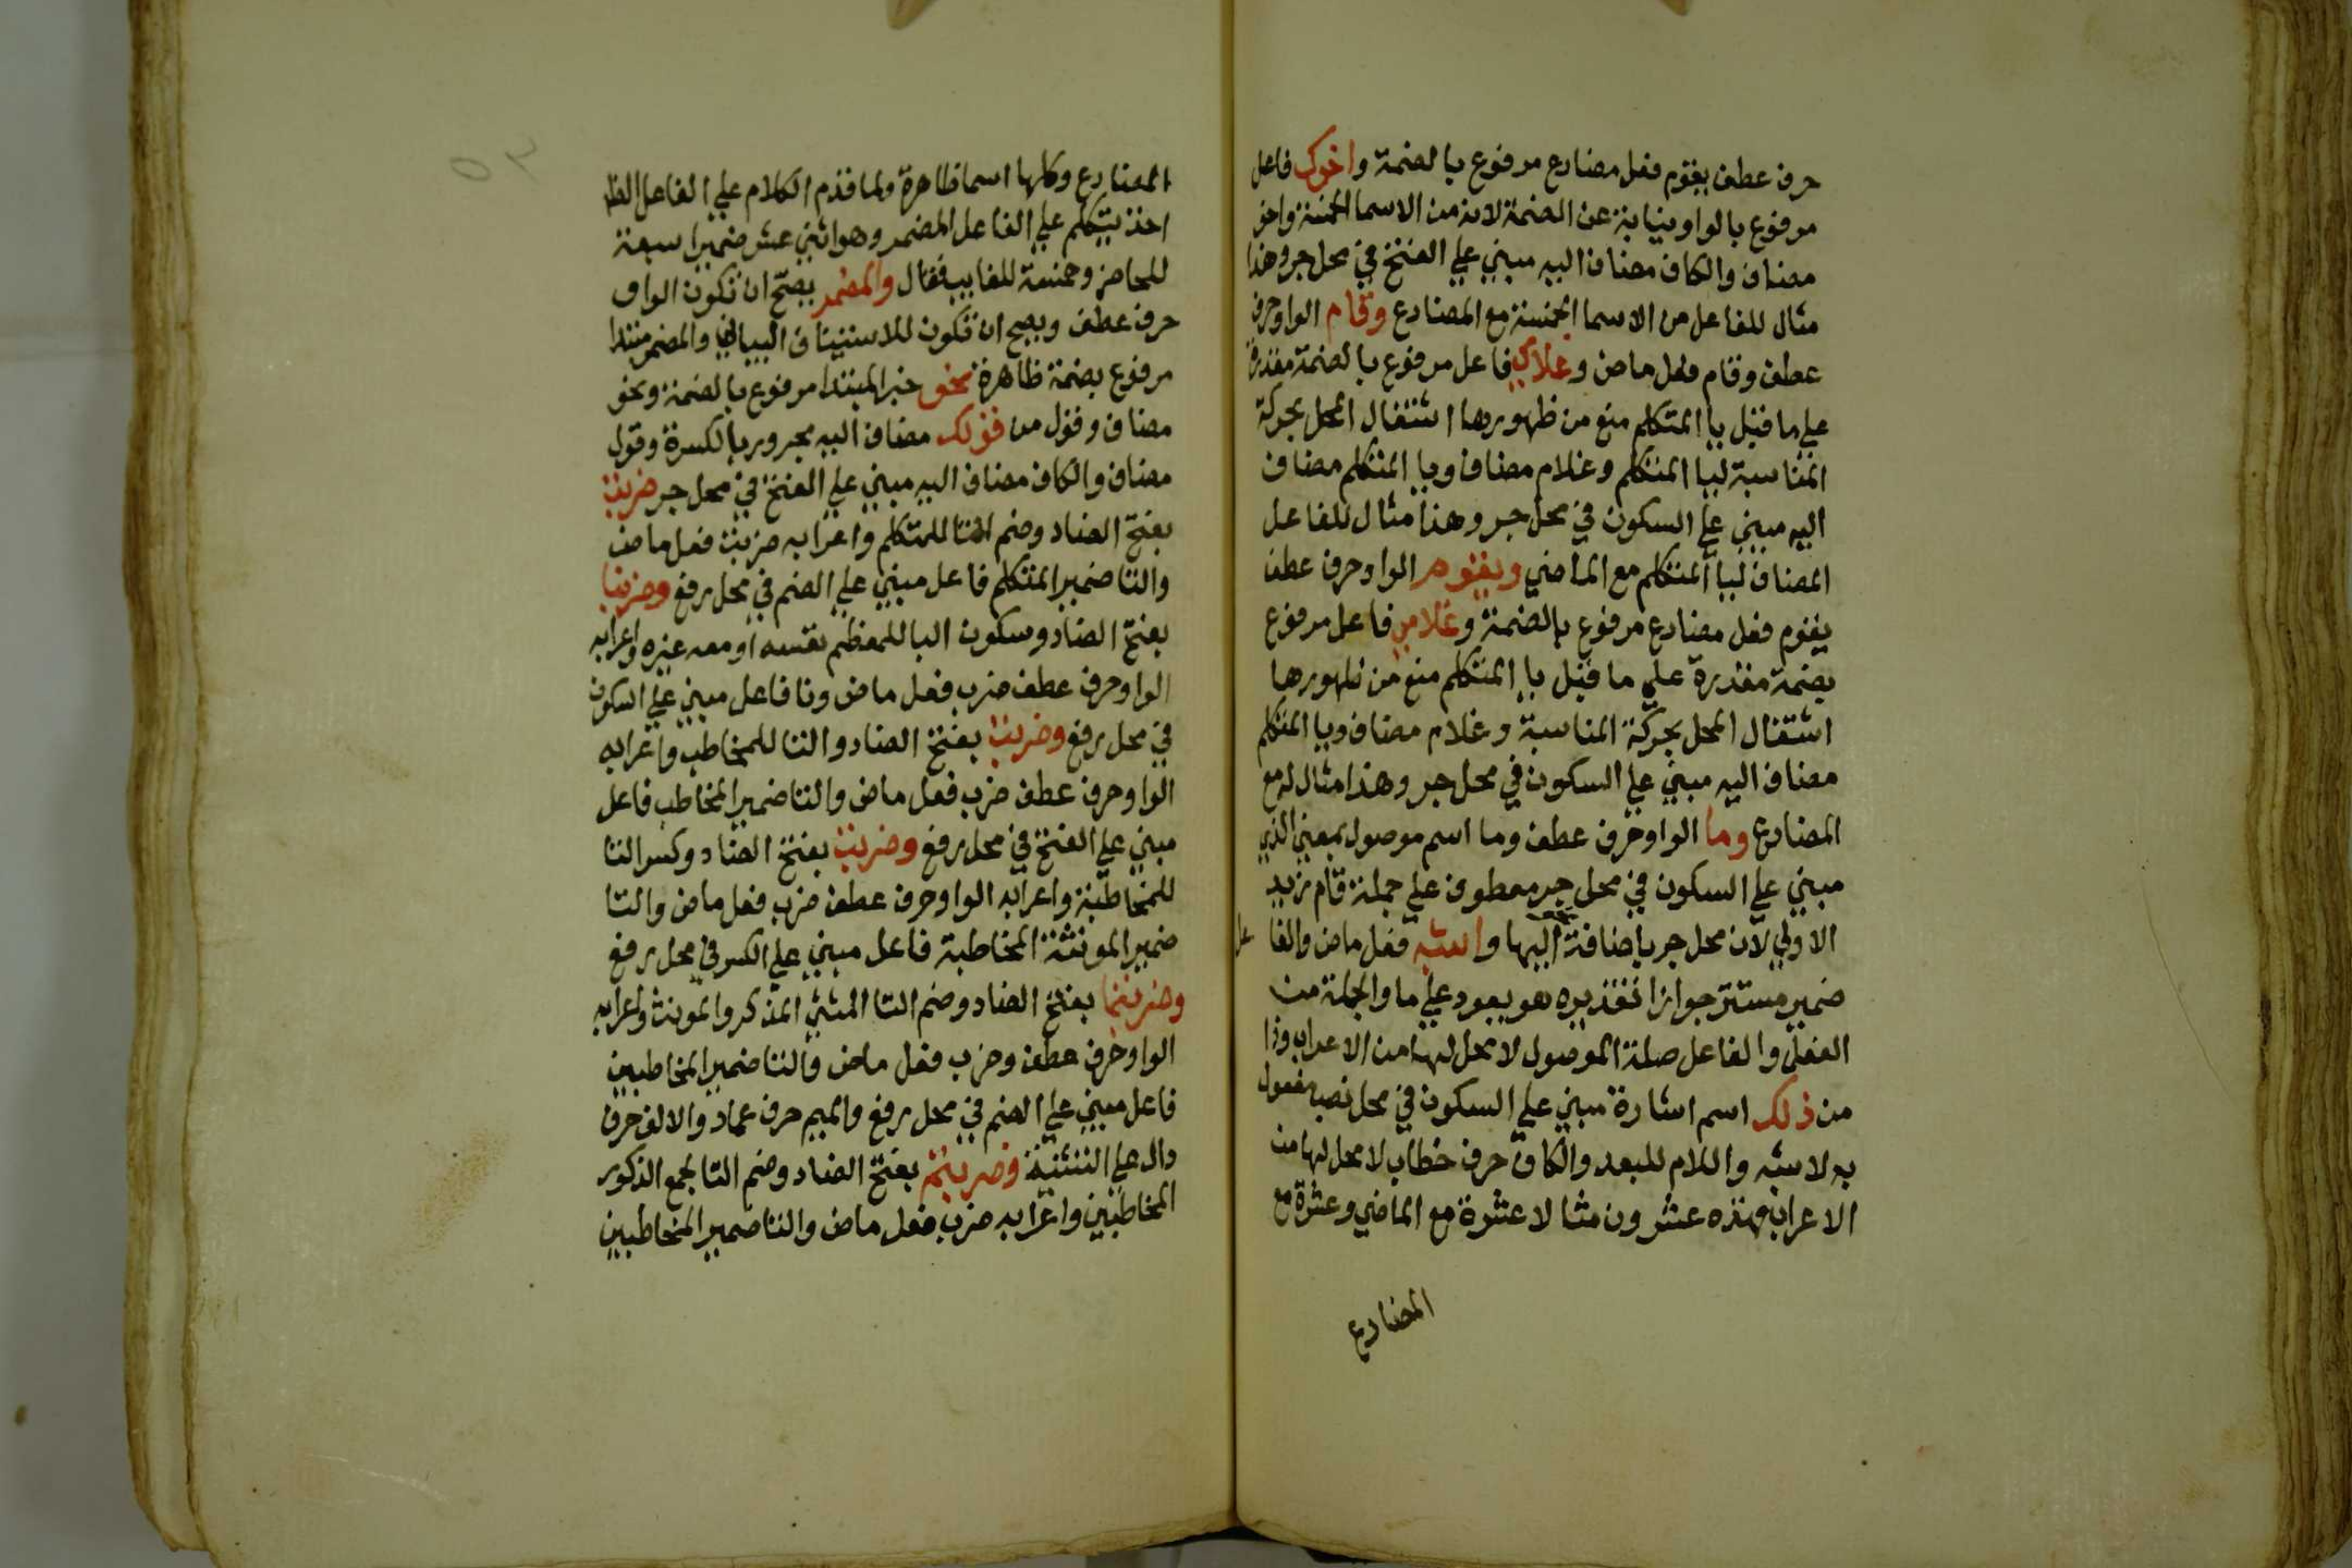 حرف عطف يقوم فعل مضارع مرفوع بالضمة واخوك فاعل
مرفوع بالواو نيابة عن الضمة لانه من الاسما الخمسة واخو
مضاف والكاف مضاف اليه مبني علي الفتح في محل جر وهذا
مثال للفاعل من الاسما الخمسة مع المضارع وقام الواو حرف
عطف وقام فعل ماض وغلامي فاعل مرفوع بالضمة مقدرة
علي ما قبل يا المتكلم منع من ظهورها اشتغال المحل بحركة
المناسبة ليا المتكلم وغلام مضاف ويا المتكلم مضاف
اليه مبني علي السكون في محل جر وهذا مثال للفاعل
المضاف ليا المتكلم مع الماضي ويقوم الواو حرف عطف
يقوم فعل مضارع مرفوع بالضمة وغلامي فاعل مرفوع
بضمة مقدرة علي ما قبل يا المتكلم منع من ظهورها
اشتغال المحل بحركة المناسبة وغلام مضاف ويا المتكلم
مضاف اليه مبني علي السكون في محل جر وهذا مثال له مع
المضارع وما الواو حرف عطف وما اسم موصول بمعني الذي
مبني علي السكون في محل جر معطوف علي جملة قام زيد
الاولي لان محل جر باضافة اليها واشبه فعل ماض والفاعل
ضمير مستتر جوازا تقديره هو يعود علي ما والجملة من
الفعل والفاعل صلة الموصول لا محل لها من الاعراب وذا
من ذلك اسم اشارة مبني علي السكون في محل نصب مفعول
به لاشبه واللام للبعد والكاف حرف خطاب لا محل لها من
الاعراب فهذه عشرون مثالا عشرة مع الماضي وعشرة مع
المضارع
٥٢
المضارع وكلها اسما ظاهرة ولما قدم الكلام علي الفاعل الظا
اخذ يتكلم علي الفاعل المضمر وهو اثني عشر ضميرا سبعة
للحاضر وخمسة للغايب فقال والمضمر يصح ان تكون الواو
حرف عطف ويصح ان تكون للاستيناف البياني والمضمر مبتدا
مرفوع بضمة ظاهرة نحو خبر المبتدا مرفوع بالضمة ونحو
مضاف وقول من قولك مضاف اليه مجرور بالكسرة وقول
مضاف والكاف مضاف اليه مبني علي الفتح في محل جر ضربت
بفتح الضاد وضم التا للمتكلم واعرابه ضربت فعل ماض
والتا ضمير المتكلم فاعل مبني علي الضم في محل رفع وضربنا
بفتح الضاد وسكون البا للمعظم نفسه او معه غيره واعرابه
الواو حرف عطف ضرب فعل ماض ونا فاعل مبني علي السكون
في محل رفع وضربت بفتح الضاد والتا للمخاطب واعرابه
الواو حرف عطف ضرب فعل ماض والتا ضمير المخاطب فاعل
مبني علي الفتح في محل رفع وضربت بفتح الضاد وكسر التا
للمخاطبة واعرابه الواو حرف عطف ضرب فعل ماض والتا
ضمير المونثة المخاطبة فاعل مبني علي الكسر في محل رفع
وضربتما بفتح الضاد وضم التا المثني المذكر والمونث واعرابه
الواو حرف عطف وضرب فعل ماض والتا ضمير المخاطبين
فاعل مبني علي الضم في محل رفع والميم حرف عماد والالف حرف
دال علي التثنية وضربتم بفتح الضاد وضم التا لجمع الذكور
المخاطبين واعرابه ضرب فعل ماض والتا ضمير المخاطبين